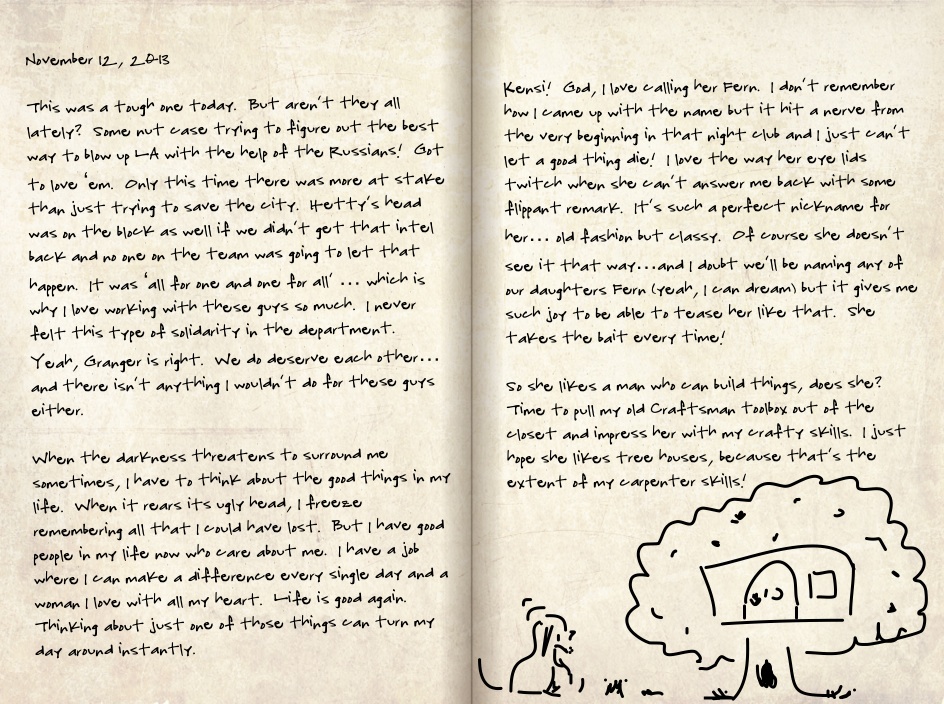 November 12, 2013
This was a tough one today. But aren't they all
lately? Some nut case trying to figure out the best
way to blow up LA with the help of the Russians! Got
to love 'em. Only this time there was more at stake
than just trying to save the city. Hetty's head
was on the block as well if we didn't get that intel
back and no one on the team was going to let that
happen. It was 'all for one and one for all' ... which is
why I love working with these guys so much. I never
felt this type of solidarity in the department.
Yeah, Granger is right. We do deserve each other...
and there isn't anything I wouldn't do for these guys
either.
When the darkness threatens to surround me
sometimes, I have to think about the good things in my
life. When it rears its ugly head, I freeze
remembering all that I could have lost. But I have good
people in my life now who care about me. I have a job
where I can make a difference every single day and a
woman I love with all my heart. Life is good again.
Thinking about just one of those things can turn my
day around instantly.
Kensi! God, I love calling her Fern. I don't remember
how I came up with the name but it hit a nerve from
the very beginning in that night club and I just can't
let a good thing die! I love the way her eye lids
twitch when she can't answer me back with some
flippant remark. It's such a perfect nickname for
her... old fashion but classy. Of course she doesn't
see it that way...and I doubt we'll be naming any of
our daughters Fern (yeah, I can dream) but it gives me
such joy to be able to tease her like that. She
takes the bait every time!
So she likes a man who can build things, does she?
Time to pull my old Craftsman toolbox out of the
closet and impress her with my crafty skills. I just
hope she likes tree houses, because that's the
extent of my carpenter skills!